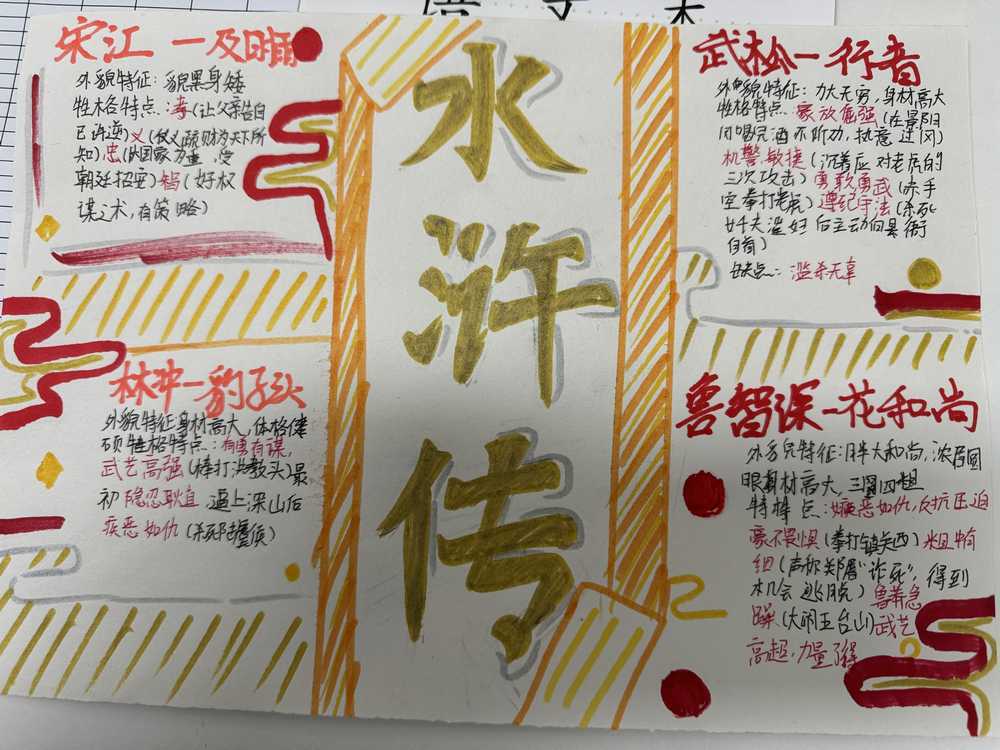 水浒传
宋江一及时雨
外貌特征：貌黑身矮
性格特点：孝(让父亲告自
己许逆)义(仗义疏财为天下所
知)忠(为国家力量,受
朝廷招安)智(好权
谋之术,有策略)
林冲一豹子头
外貌特征身材高大,体格健
硕 性格特点：有勇有谋,
武艺高强(棒打洪教头)最
初隐忍耿直,逼上深山后
疾恶如仇(杀死陆虞侯)
武松一行者
外貌特征：力大无穷,身材高大
性格特点：豪放倔强(在景阳
冈喝完酒不听劝,执意过冈)
机警敏捷(沉着应对老虎的
三次攻击)勇敢勇武(赤手
空拳打老虎)遵纪守法(杀死
奸夫淫妇后主动向县衙
自首)
缺点：滥杀无辜
鲁智深一花和尚
外貌特征：胖大和尚,浓眉圆
眼身材高大,三圆四粗
特点：嫉恶如仇,反抗压迫
豪不畏惧(拳打镇关西)粗中有
细(声称郑屠“诈死”,得到
机会逃脱)鲁莽急
躁(大闹五台山)武艺
高超,力量了得